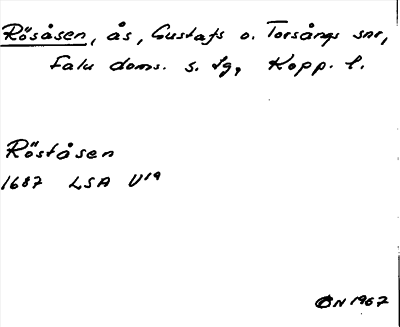 Rösåsen, ås, Gustafs o. Torsångs snr,
Falu doms. s. lg, Kopp. l.
Röståsen
1687 LSA U19
ÖN 1967